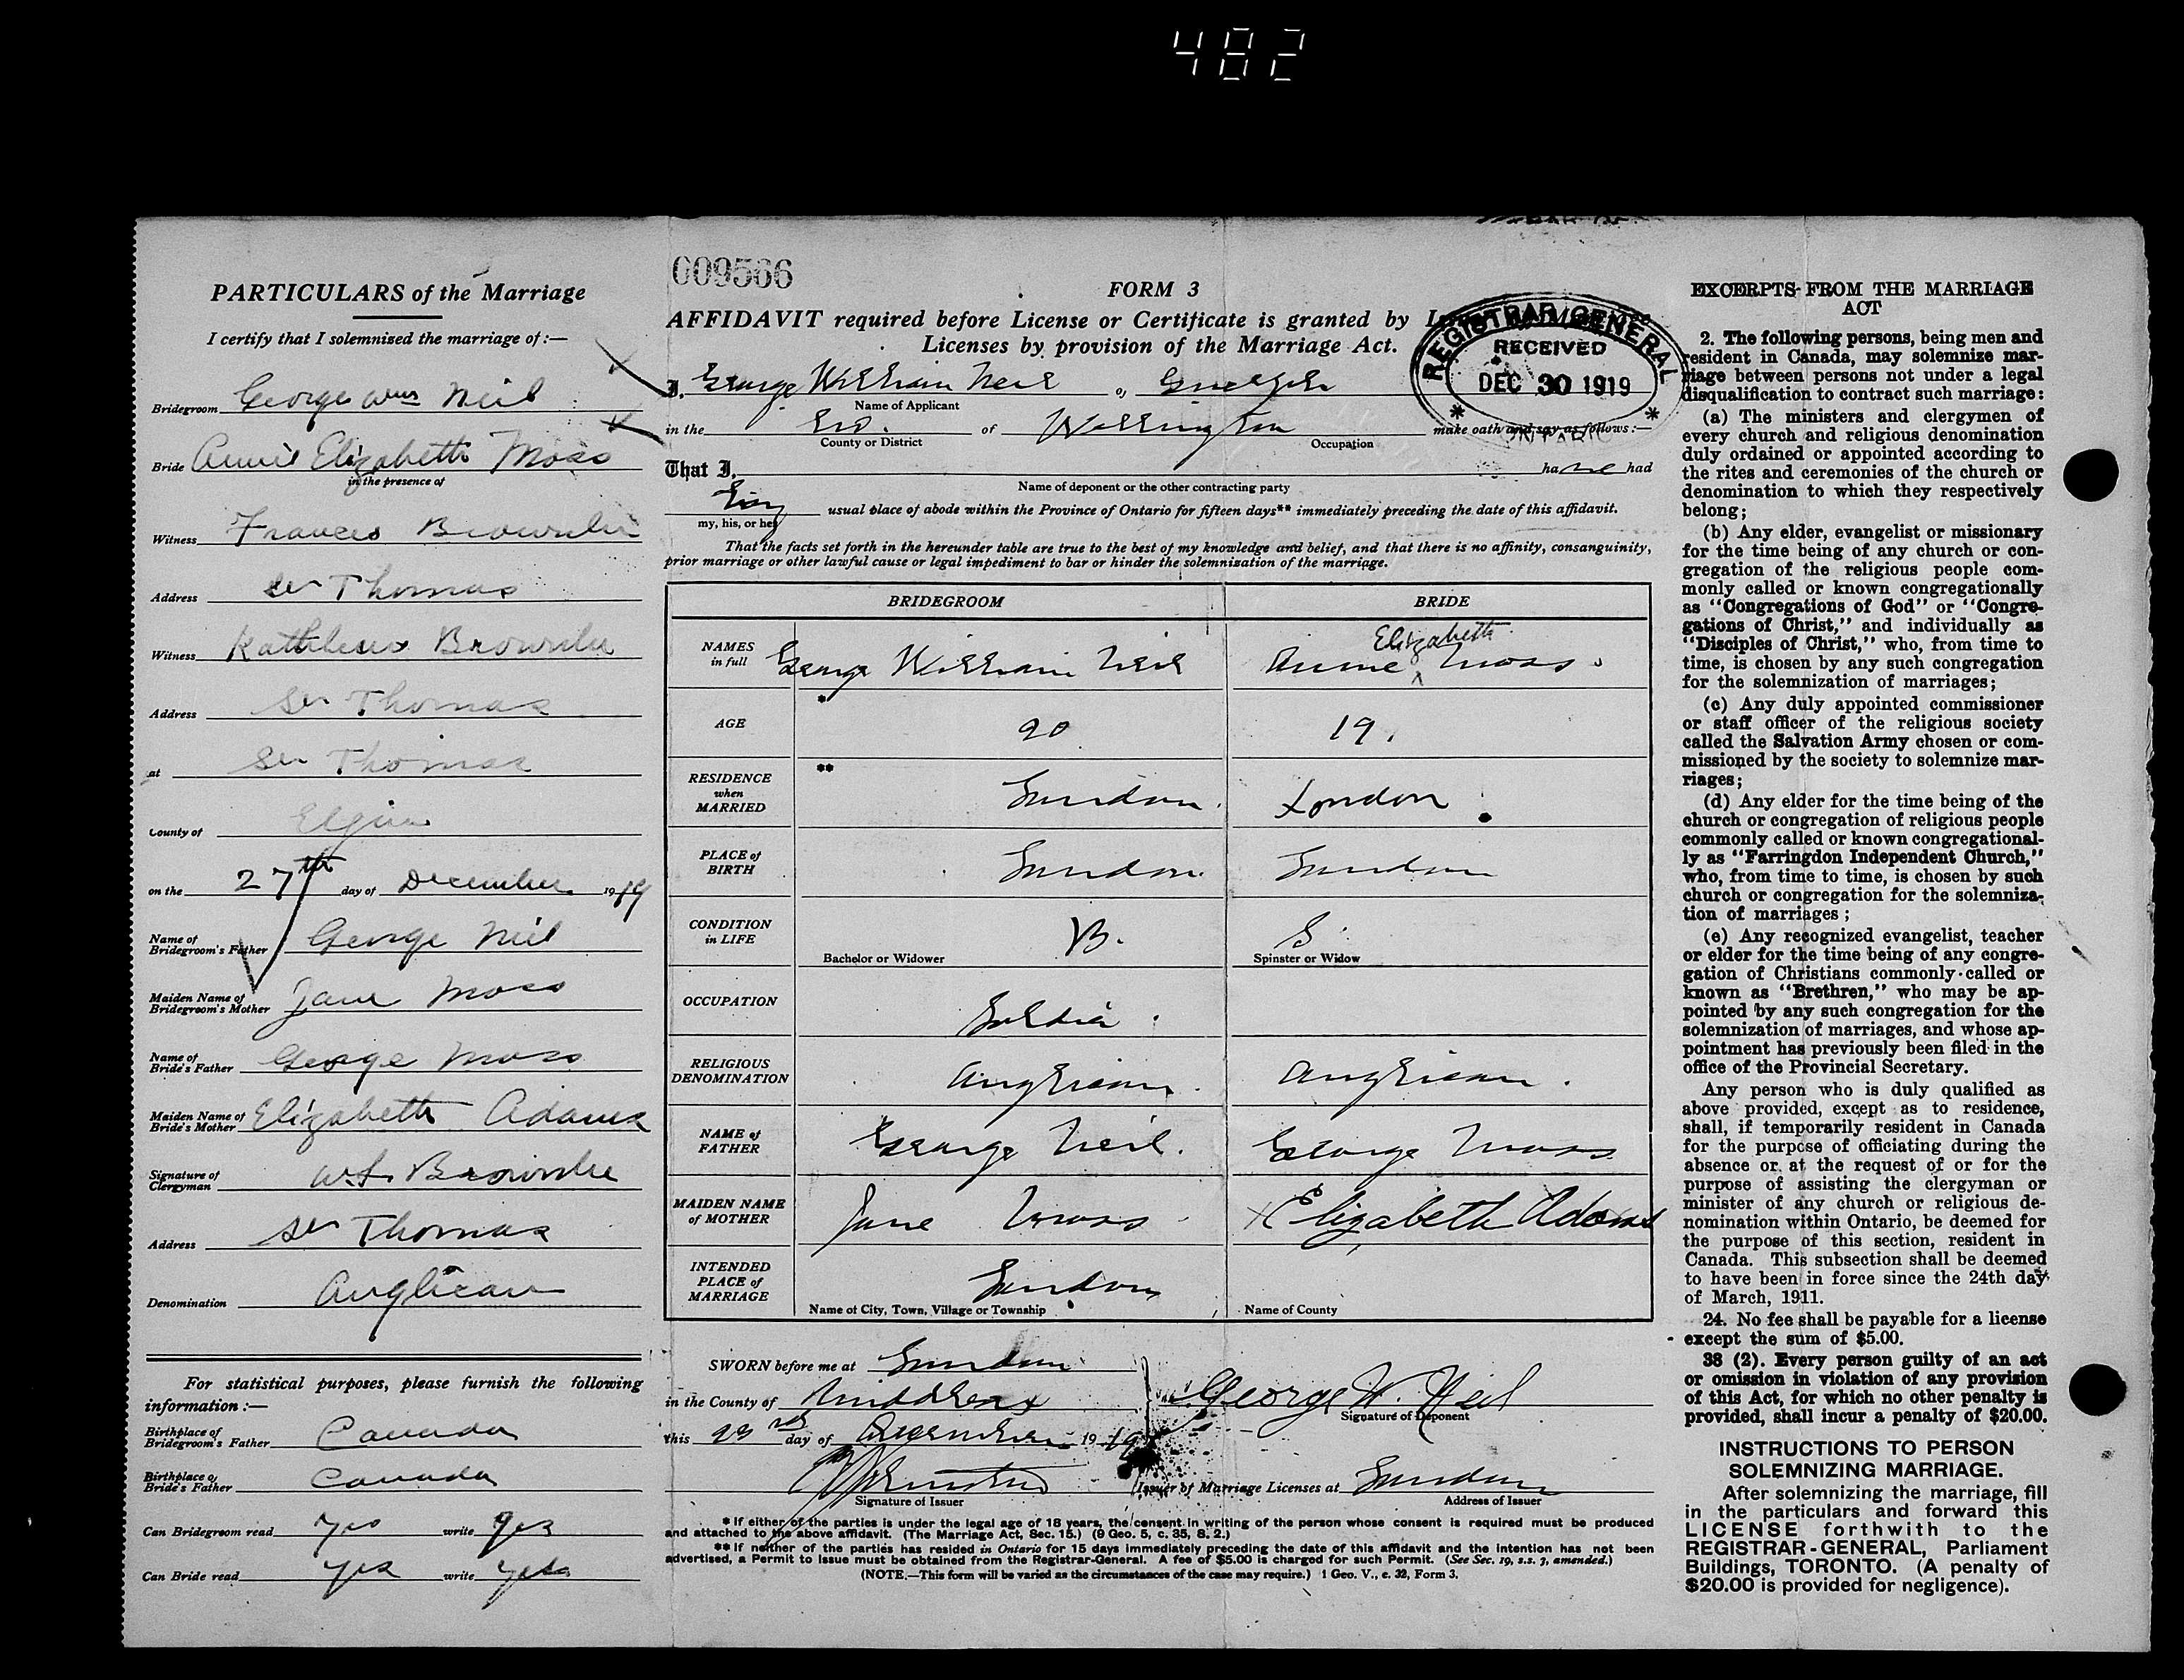 482
PARTICULARS of the Marriage
I certify that I solemnized the marriage of:—
Bridegroom George Wm Neil
Bride Annie Elizabeth Moss
in the presence of
Witness Frances Brownlee
Address St Thomas
Witness Kathleen Brownlee
Address St Thomas
at St Thomas
County of Elgin
on the 27th day of December 1919
Name of Bridegroom's Father George Neil
Maiden Name of Bridegroom's Mother Jane Moss
Name of Bride's Father George Moss
Maiden Name of Bride's Mother Elizabeth Adams
Signature of Clergyman W.J. Brownlee
Address St Thomas
Denomination Anglican
For statistical purposes, please furnish the following
information:—
Birthplace of Bridegroom's Father Canada
Birthplace of Bride's Father Canada
Can Bridegroom read yes write yes
Can Bride read yes write yes
009566
FORM 3
AFFIDAVIT required before License or Certificate is granted by
Licenses by provision of the Marriage Act.
REGISTRAR GENERAL
RECEIVED
DEC 30 1919
ONTARIO
I, George William Neil of Guelph
Name of Applicant
in the Co. of Wellington make oath and say as follows:—
County or District Occupation
That I, have had
Name of deponent or the other contracting party
my, his, or her usual place of abode within the Province of Ontario for fifteen days** immediately preceding the date of this affidavit.
That the facts set forth in the hereunder table are true to the best of my knowledge and belief, and that there is no affinity, consanguinity,
prior marriage or other lawful cause or legal impediment to bar or hinder the solemnization of the marriage.
BRIDEGROOM BRIDE
NAMES in full George William Neil Annie Elizabeth Moss
AGE * 20 19
RESIDENCE when MARRIED ** London London
PLACE of BIRTH London London
CONDITION in LIFE B. S
Bachelor or Widower Spinster or Widow
OCCUPATION Soldier
RELIGIOUS DENOMINATION Anglican Anglican
NAME of FATHER George Neil George Moss
MAIDEN NAME of MOTHER Jane Moss Elizabeth Adams
INTENDED PLACE of MARRIAGE London
Name of City, Town, Village or Township Name of County
SWORN before me at London
in the County of Middlesex George W. Neil
Signature of Deponent
this 23rd day of December 1919
Issuer of Marriage Licenses at London
Signature of Issuer Address of Issuer
* If either of the parties is under the legal age of 18 years, the consent in writing of the person whose consent is required must be produced
and attached to the above affidavit. (The Marriage Act, Sec. 15.) (9 Geo. 5, c. 35, S. 2.)
** If neither of the parties has resided in Ontario for 15 days immediately preceding the date of this affidavit and the intention has not been
advertised, a Permit to issue must be obtained from the Registrar-General. A fee of $5.00 is charged for such Permit. (See Sec. 19, s.s. 3, amended.)
(NOTE.—This form will be varied as the circumstances of the case may require.) 1 Geo. V., c. 32, Form 3.
EXCERPTS FROM THE MARRIAGE
ACT
2. The following persons, being men and
resident in Canada, may solemnize mar-
riage between persons not under a legal
disqualification to contract such marriage:
(a) The ministers and clergymen of
every church and religious denomination
duly ordained or appointed according to
the rites and ceremonies of the church or
denomination to which they respectively
belong;
(b) Any elder, evangelist or missionary
for the time being of any church or con-
gregation of the religious people com-
monly called or known congregationally
as "Congregations of God" or "Congre-
gations of Christ," and individually as
"Disciples of Christ," who, from time to
time, is chosen by any such congregation
for the solemnization of marriages;
(c) Any duly appointed commissioner
or staff officer of the religious society
called the Salvation Army chosen or com-
missioned by the society to solemnize mar-
riages;
(d) Any elder for the time being of the
church or congregation of religious people
commonly called or known congregational-
ly as "Farringdon Independent Church,"
who, from time to time, is chosen by such
church or congregation for the solemniza-
tion of marriages;
(e) Any recognized evangelist, teacher
or elder for the time being of any congre-
gation of Christians commonly called or
known as "Brethren," who may be ap-
pointed by any such congregation for the
solemnization of marriages, and whose ap-
pointment has previously been filed in the
office of the Provincial Secretary.
Any person who is duly qualified as
above provided, except as to residence,
shall, if temporarily resident in Canada
for the purpose of officiating during the
absence or at the request of or for the
purpose of assisting the clergyman or
minister of any church or religious de-
nomination within Ontario, be deemed for
the purpose of this section, resident in
Canada. This subsection shall be deemed
to have been in force since the 24th day
of March, 1911.
24. No fee shall be payable for a license
except the sum of $5.00.
38 (2). Every person guilty of an act
or omission in violation of any provision
of this Act, for which no other penalty is
provided, shall incur a penalty of $20.00.
INSTRUCTIONS TO PERSON
SOLEMNIZING MARRIAGE.
After solemnizing the marriage, fill
in the particulars and forward this
LICENSE forthwith to the
REGISTRAR-GENERAL, Parliament
Buildings, TORONTO. (A penalty of
$20.00 is provided for negligence).